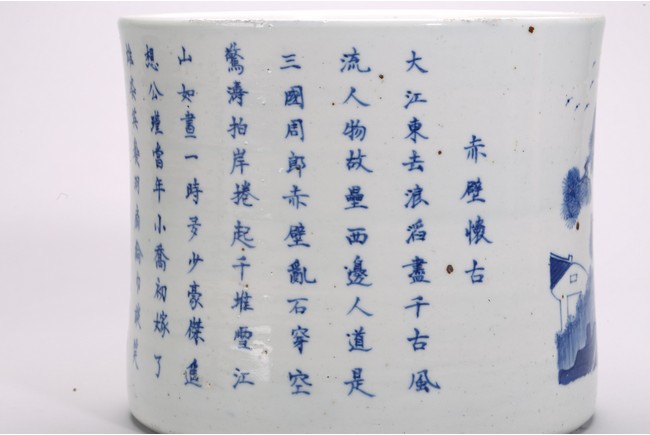 赤壁懷古
大江東去浪滔盡千古風
流人物故壘西邊人道是
三國周郎赤壁亂石穿空
驚濤拍岸捲起千堆雪江
山如畫一時多少豪傑遙
想公瑾當年小喬初嫁了
雄姿英發羽扇綸巾談笑